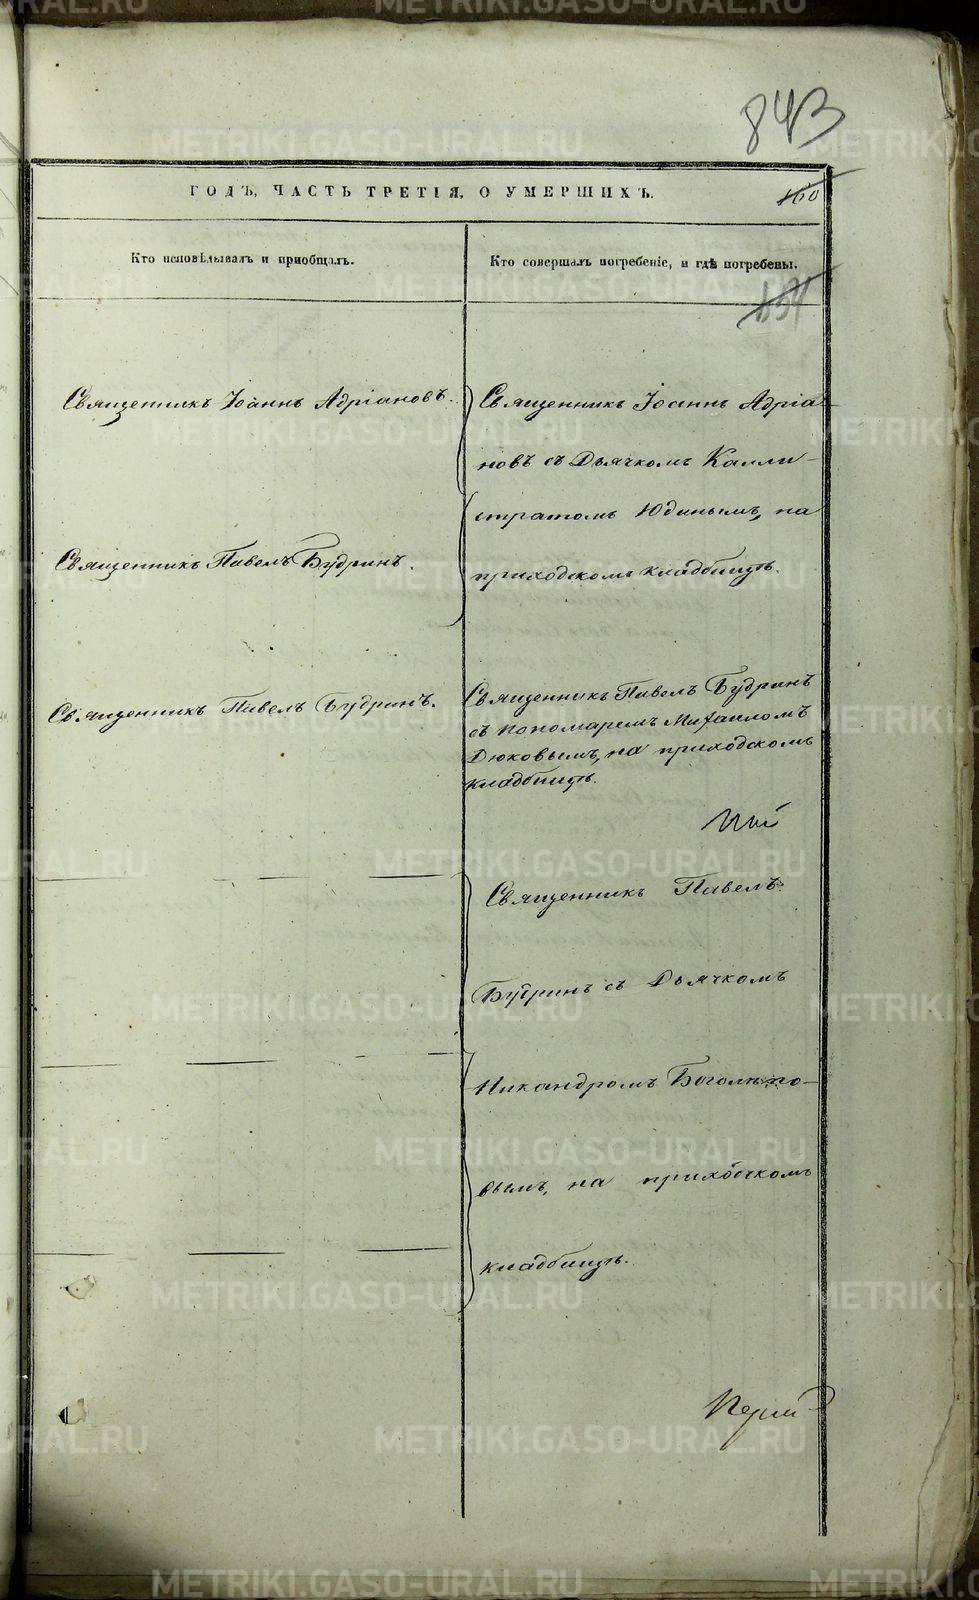 843
ГОДЪ, ЧАСТЬ ТРЕТІЯ, О УМЕРШИХЪ.
160
Кто исповѣдывалъ и пріобщалъ.
Кто совершалъ погребеніе, и гдѣ погребены.
Священникъ Іоаннъ Адріановъ.
Священникъ Іоаннъ Адріа-
новъ съ Дьячкомъ Калли-
стратомъ Юдинымъ, на
приходскомъ кладбищѣ.
Священникъ Павелъ Будринъ.
Священникъ Павелъ Будринъ.
Священникъ Павелъ Будринъ
съ пономаремъ Михаиломъ
Дюковымъ, на приходскомъ
кладбищѣ.
Священникъ Павелъ
Будринъ съ Дьячкомъ
Никандромъ Боголѣпо-
вымъ, на приходскомъ
кладбищѣ.
METRIKI.GASO-URAL.RU